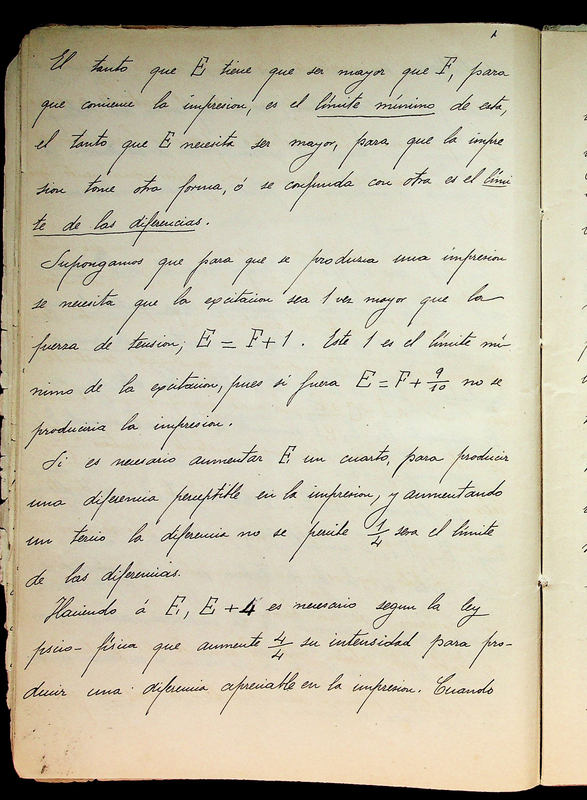 El tanto que E tiene que ser mayor que F, para
que comience la impresion, es el límite mínimo de esta,
el tanto que E necesita ser mayor, para que la impre
sion tome otra forma, ó se confunda con otra es el lími
te de las diferencias.
Supongamos que para que se produzca una impresion
se necesita que la excitacion sea 1 vez mayor que la
fuerza de tension; E = F+1. Este 1 es el límite mí-
nimo de la excitacion, pues si fuera E = F + 9/10 no se
produciria la impresion.
Si es necesario aumentar E un cuarto, para producir
una diferencia perceptible en la impresion, y aumentando
un tercio la diferencia no se percibe 1/4 sera el límite
de las diferencias.
Haciendo á E, E + 4 es necesario segun la ley
psico-física que aumente 4/4 su intensidad para pro-
ducir una diferencia apreciable en la impresion. Cuando